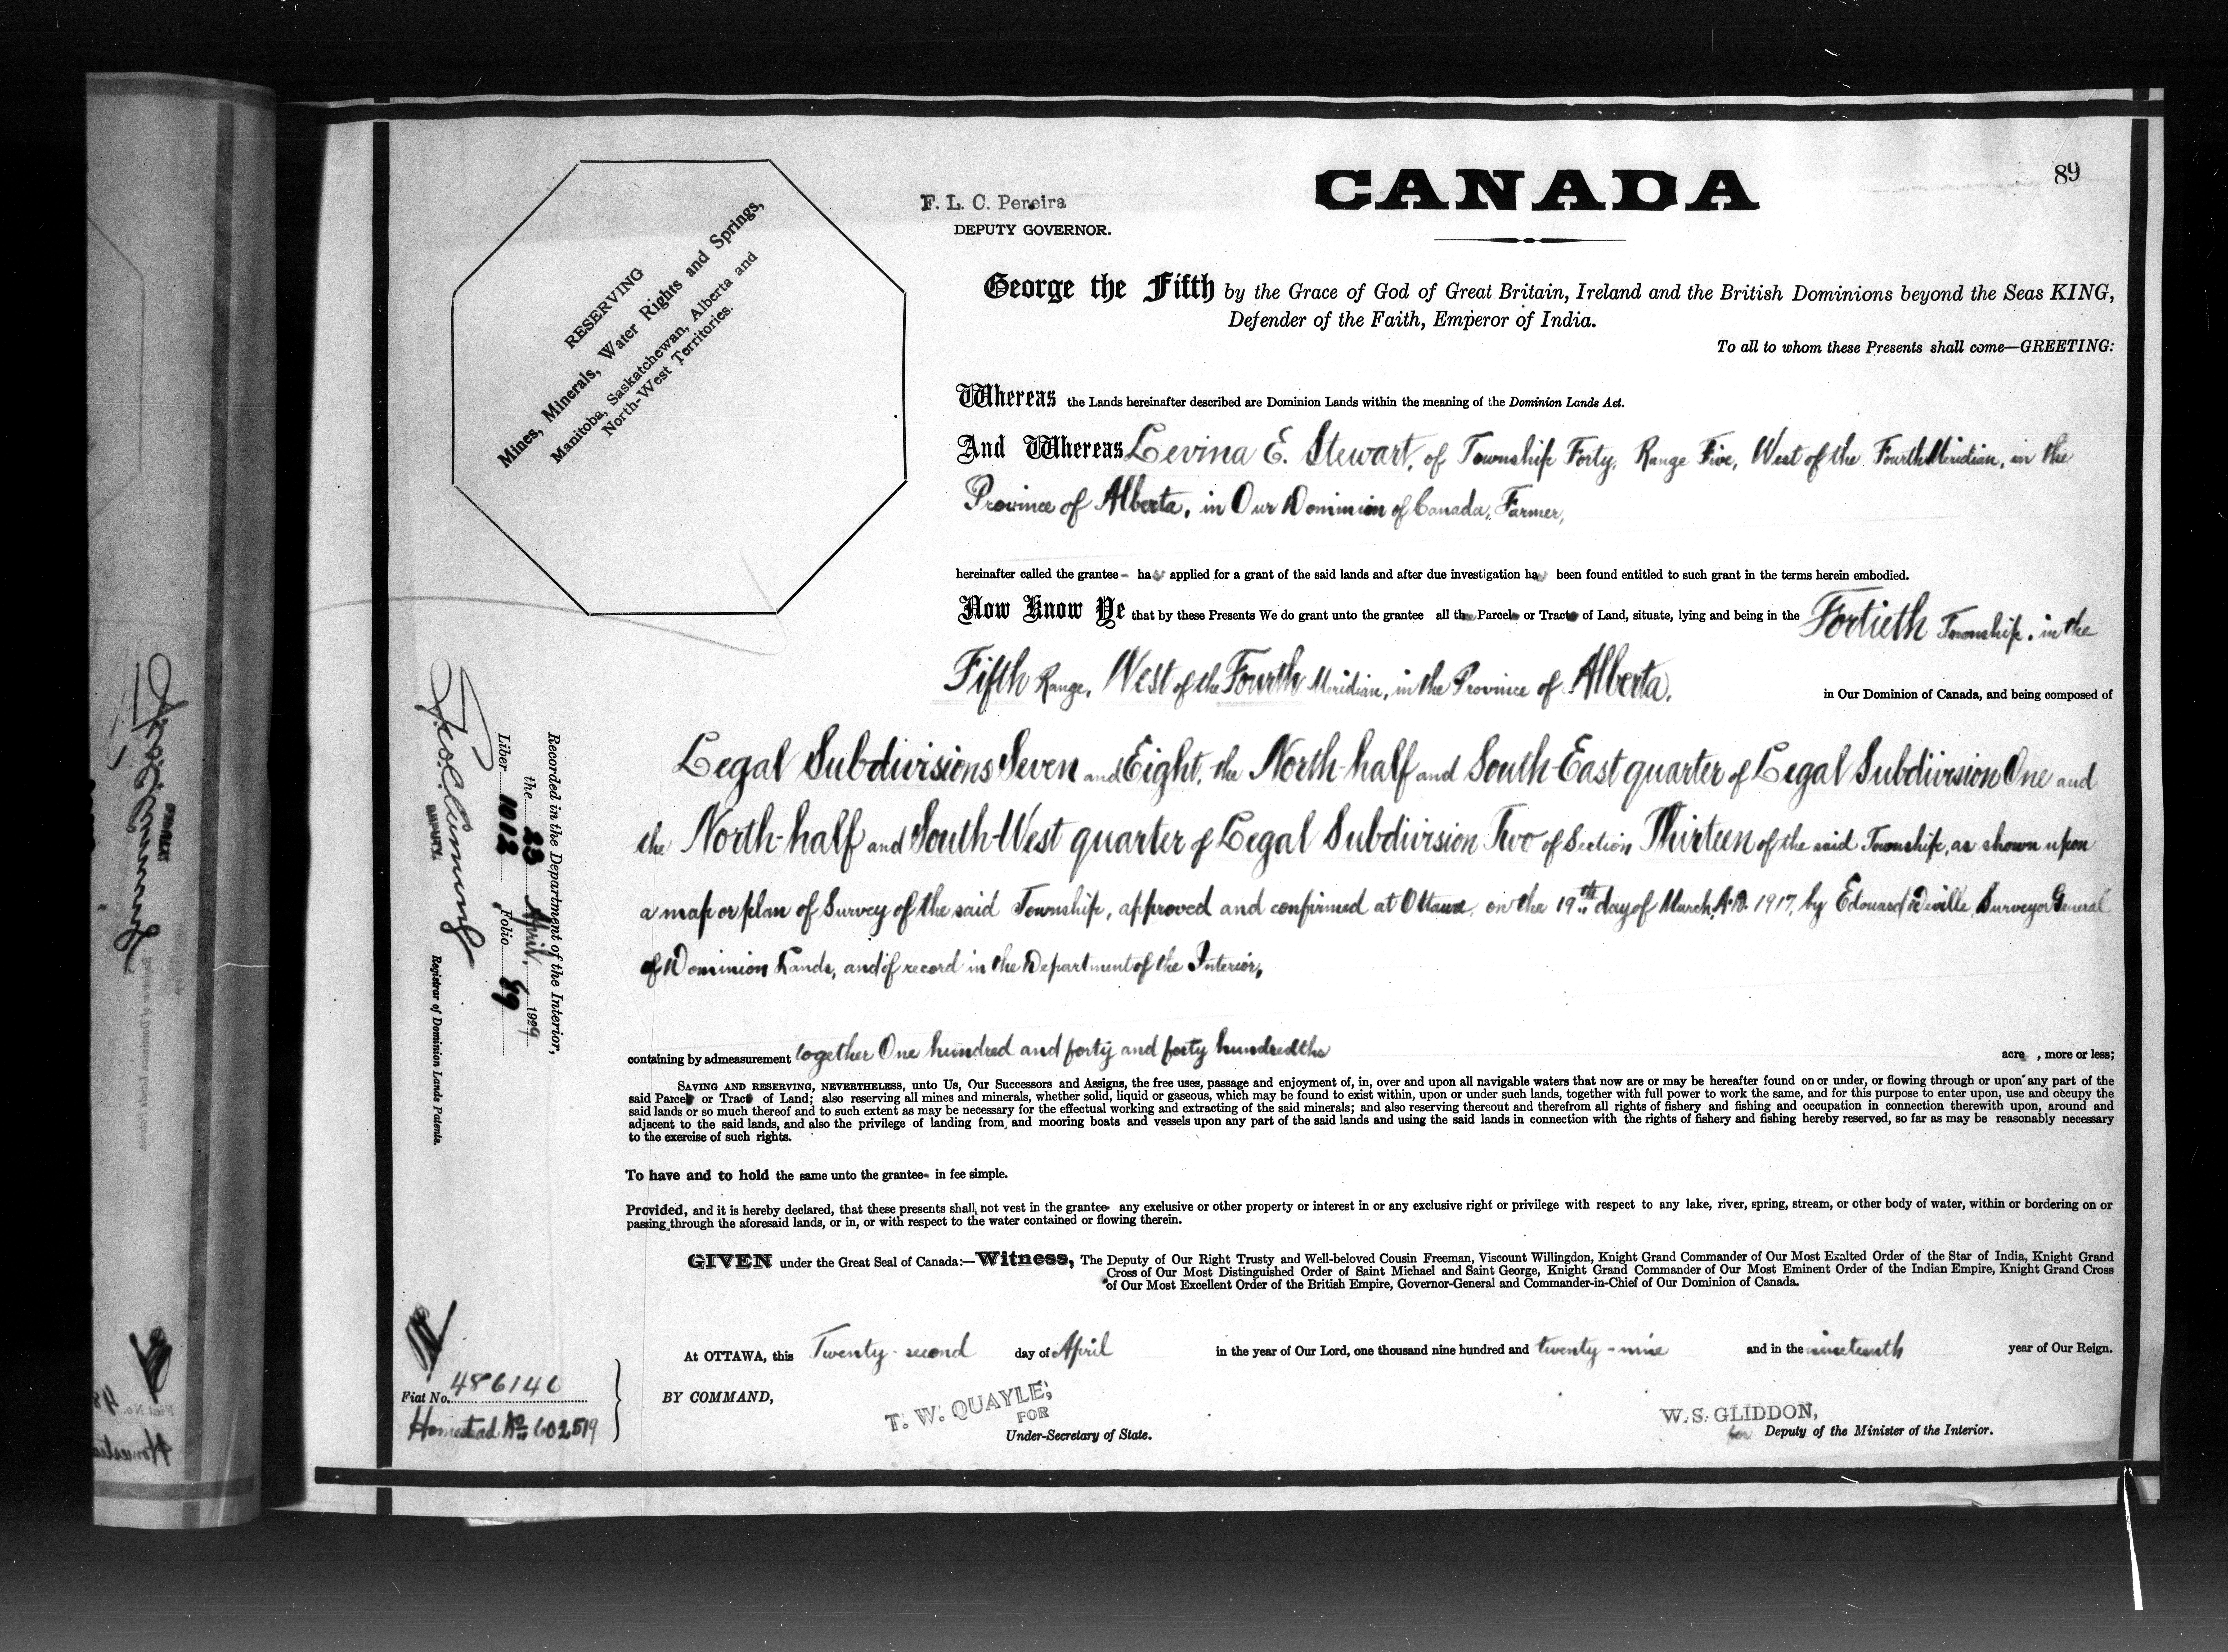 89
CANADA
F. L. C. Pereira
DEPUTY GOVERNOR.
RESERVING
Mines, Minerals, Water Rights and Springs,
Manitoba, Saskatchewan, Alberta and
North-West Territories.
George the Fifth by the Grace of God of Great Britain, Ireland and the British Dominions beyond the Seas KING,
Defender of the Faith, Emperor of India.
To all to whom these Presents shall come—GREETING:
Whereas the Lands hereinafter described are Dominion Lands within the meaning of the Dominion Lands Act.
And Whereas Levina E. Stewart, of Township Forty, Range Five, West of the Fourth Meridian, in the
Province of Alberta, in Our Dominion of Canada, Farmer,
hereinafter called the grantee - has applied for a grant of the said lands and after due investigation has been found entitled to such grant in the terms herein embodied.
Now Know Ye that by these Presents We do grant unto the grantee all th Parcel or Tract of Land, situate, lying and being in the Fortieth Township, in the
Fifth Range, West of the Fourth Meridian, in the Province of Alberta, in Our Dominion of Canada, and being composed of
Legal Subdivisions Seven and Eight, the North-half and South-East quarter of Legal Subdivision One and
the North-half and South-West quarter of Legal Subdivision Two of Section Thirteen of the said Township, as shown upon
a map or plan of Survey of the said Township, approved and confirmed at Ottawa, on the 19th day of March, A.D. 1917, by Edouard Deville, Surveyor General
of Dominion Lands, and of record in the Department of the Interior,
containing by admeasurement together One hundred and forty and forty hundredths acre , more or less;
SAVING AND RESERVING, NEVERTHELESS, unto Us, Our Successors and Assigns, the free uses, passage and enjoyment of, in, over and upon all navigable waters that now are or may be hereafter found on or under, or flowing through or upon any part of the
said Parcel or Tract of Land; also reserving all mines and minerals, whether solid, liquid or gaseous, which may be found to exist within, upon or under such lands, together with full power to work the same, and for this purpose to enter upon, use and occupy the
said lands or so much thereof and to such extent as may be necessary for the effectual working and extracting of the said minerals; and also reserving thereout and therefrom all rights of fishery and fishing and occupation in connection therewith upon, around and
adjacent to the said lands, and also the privilege of landing from, and mooring boats and vessels upon any part of the said lands and using the said lands in connection with the rights of fishery and fishing hereby reserved, so far as may be reasonably necessary
to the exercise of such rights.
To have and to hold the same unto the grantee - in fee simple.
Provided, and it is hereby declared, that these presents shall not vest in the grantee - any exclusive or other property or interest in or any exclusive right or privilege with respect to any lake, river, spring, stream, or other body of water, within or bordering on or
passing through the aforesaid lands, or in, or with respect to the water contained or flowing therein.
GIVEN under the Great Seal of Canada:—Witness, The Deputy of Our Right Trusty and Well-beloved Cousin Freeman, Viscount Willingdon, Knight Grand Commander of Our Most Exalted Order of the Star of India, Knight Grand
Cross of Our Most Distinguished Order of Saint Michael and Saint George, Knight Grand Commander of Our Most Eminent Order of the Indian Empire, Knight Grand Cross
of Our Most Excellent Order of the British Empire, Governor-General and Commander-in-Chief of Our Dominion of Canada.
At OTTAWA, this Twenty-second day of April in the year of Our Lord, one thousand nine hundred and twenty-nine and in the nineteenth year of Our Reign.
BY COMMAND,
T. W. QUAYLE,
FOR
Under-Secretary of State.
W. S. GLIDDON,
for Deputy of the Minister of the Interior.
Recorded in the Department of the Interior,
the 23 April, 1929
Liber 1012 Folio 89
Registrar of Dominion Lands Patents.
Fiat No. 486146
Homestead No 602519